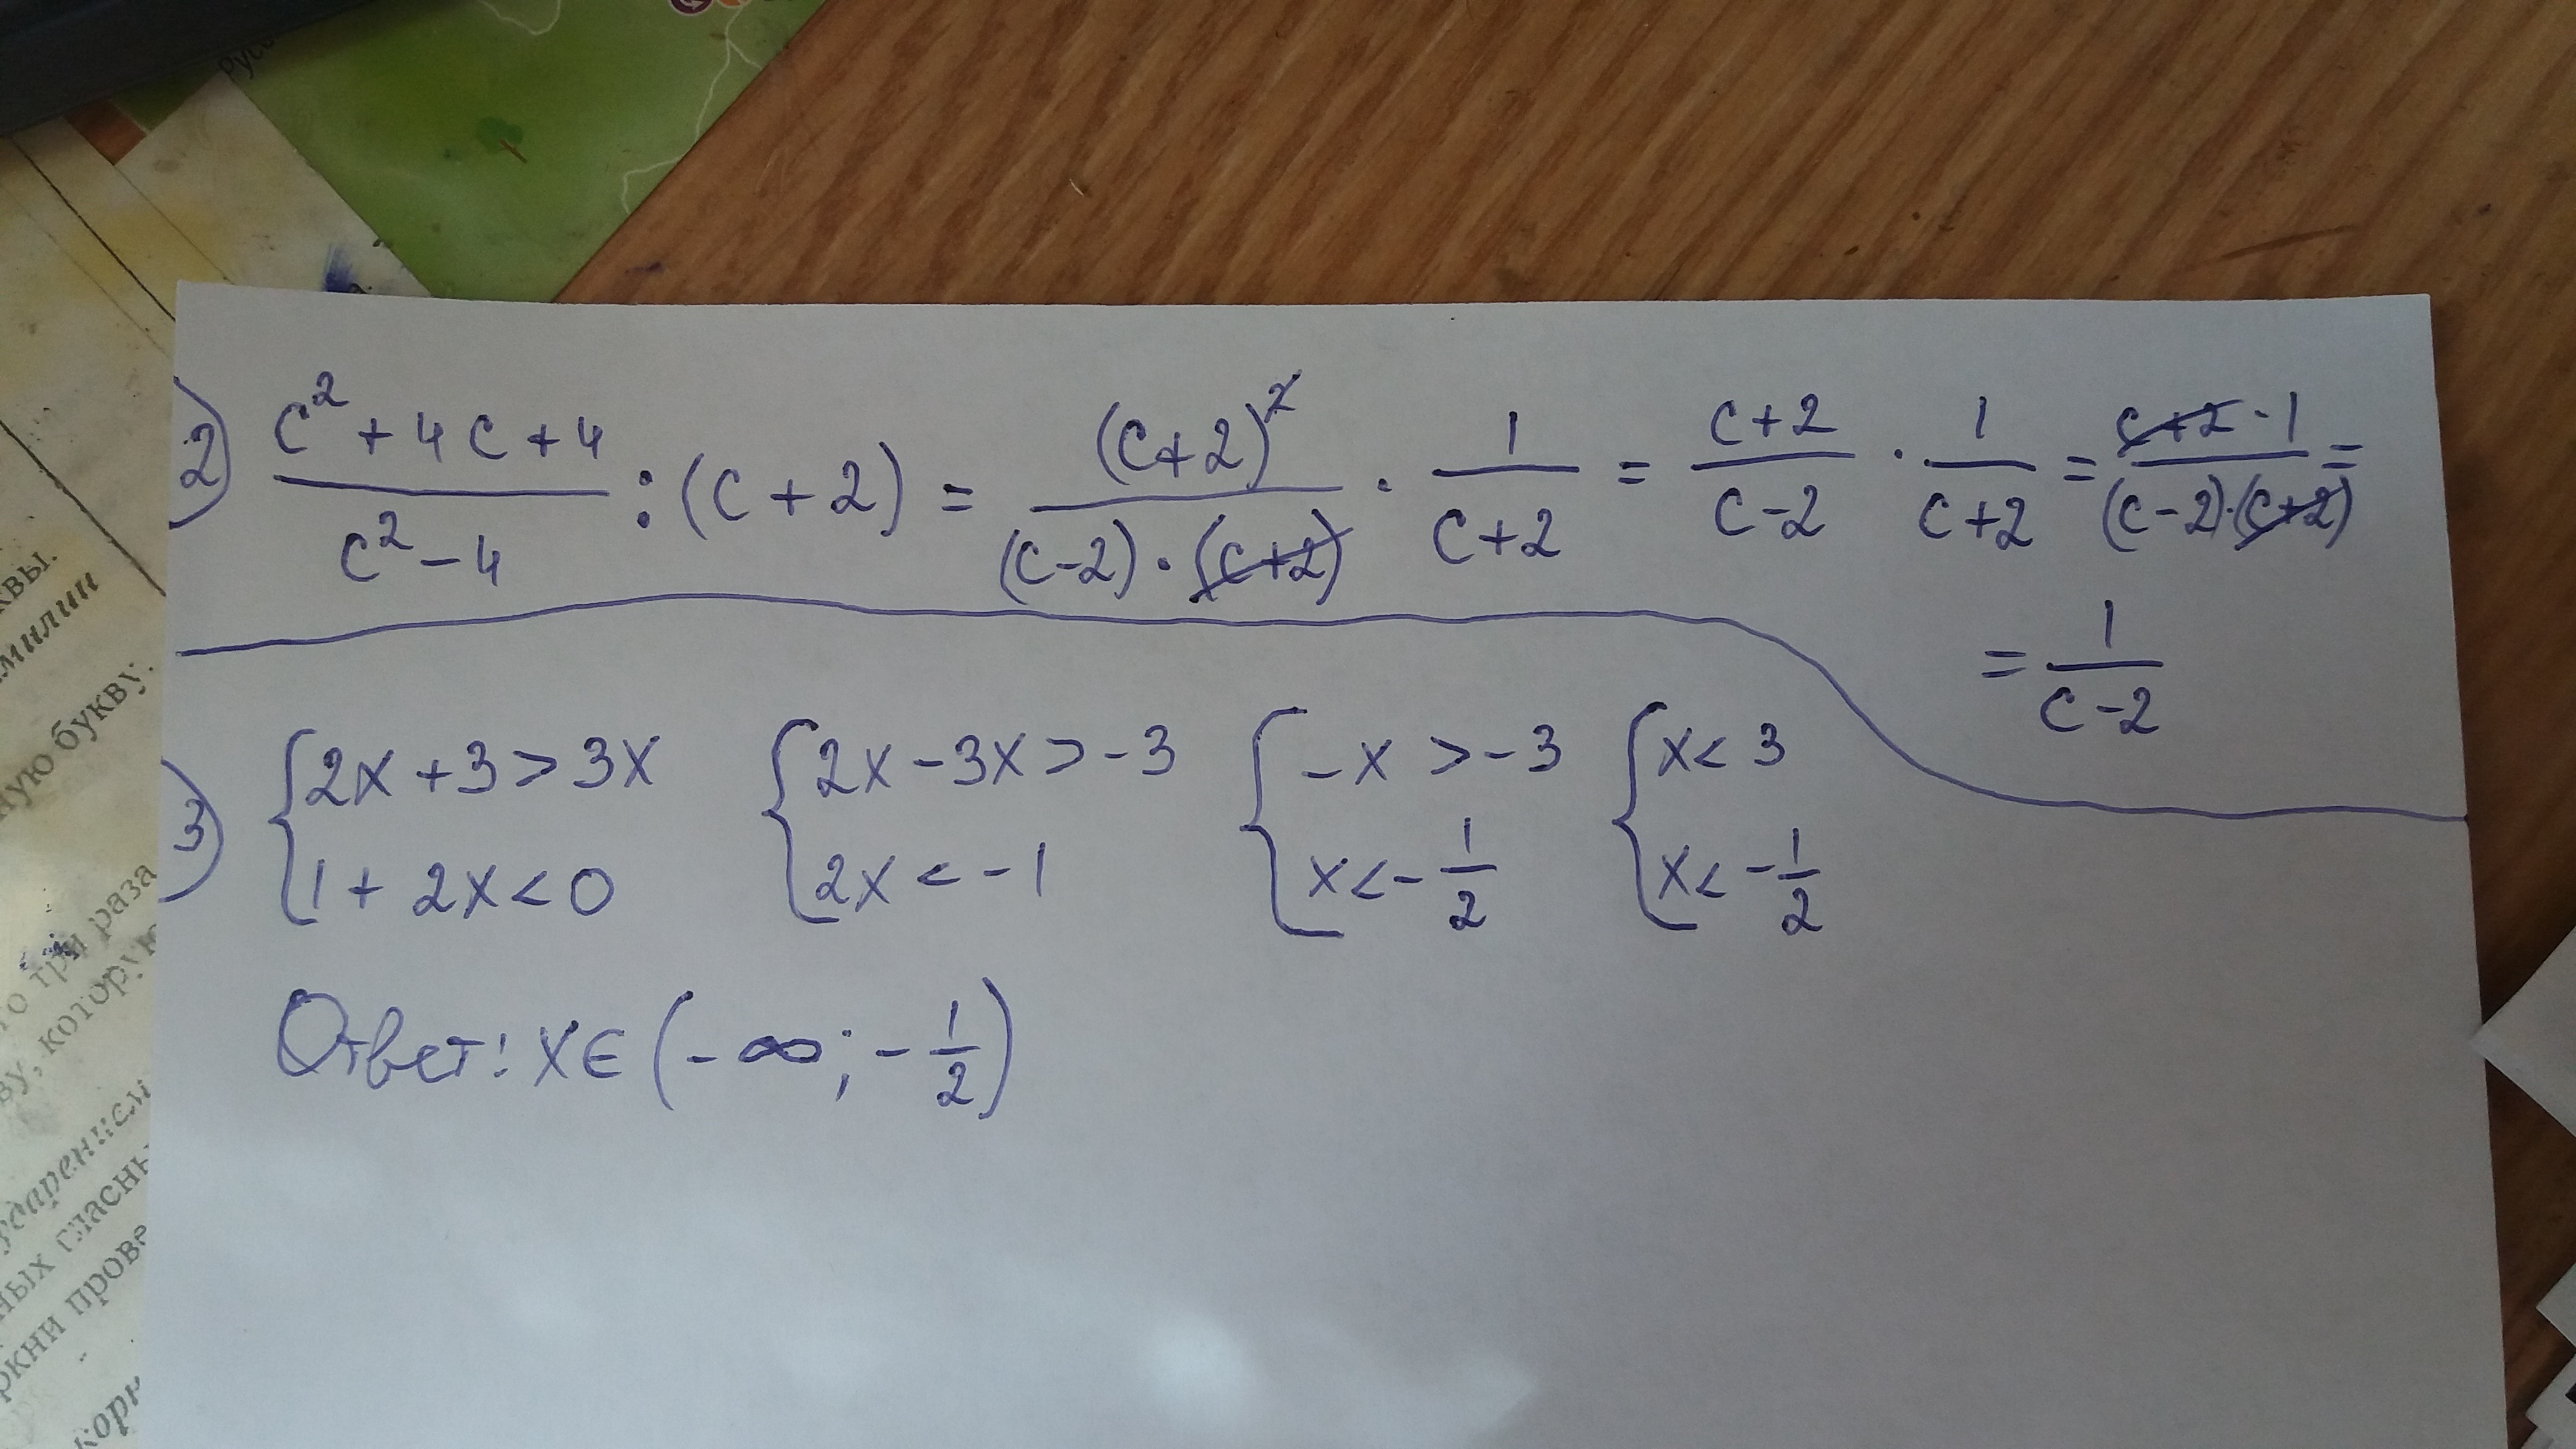 Русс
2) c²+4c+4/c²-4 : (c+2) = (c+2)²/(c-2)·(c+2) · 1/c+2 = c+2/c-2 · 1/c+2 = c+2·1/(c-2)·(c+2) =
= 1/c-2
3) {2x+3>3x {2x-3x>-3 {-x>-3 {x<3
{1+2x<0 {2x<-1 {x<-1/2 {x<-1/2
Ответ: x∈(-∞; -1/2)
квы.
милии
ную букву.
то три раза
ву, которую
ударением
ных гласнь
ркни прове
корн